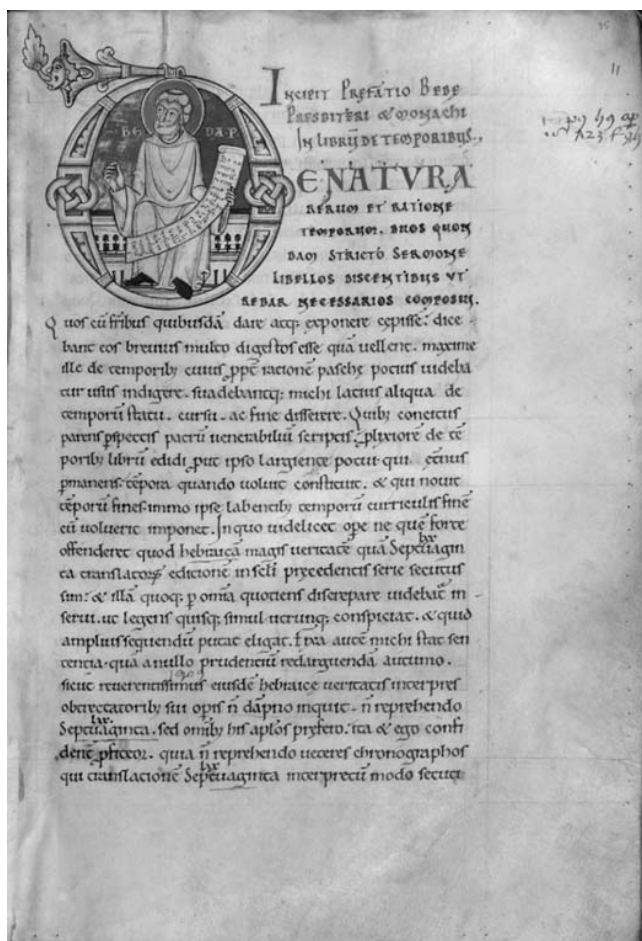 11
INCIPIT PREFATIO BEDE
PRESBITERI & MONACHI
IN LIBRŪ DE TEMPORIBUS.,
BE DA.P
DE NATURA
RERUM ET RATIONE
TEMPORUM. DUOS QUON
DAM STRICTO SERMONE
LIBELLOS DISCENTIBUS UT
REBAR NECESSARIOS COMPOSUI.
Quos cū fr̄ibus quibusdā dare atq; exponere cepisse; dice
bant eos brevius multo digestos esse quā vellent. maxime
ille de temporib; cuius ꝓpt̄ racionē pasche pocius uideba
tur usus indigere. suadebantq; michi latius aliqua de
temporū statu. cursu. ac fine disserere. Quib; coneictus
parens ꝑspectis patrū uenerabiliū scriptis. ꝓlixiorē de tē
porib; librū edidi ꝓut ipso largiente potui. qui et̄nus
ꝑmanens. tēpora quando uoluit constituit. & qui nouit
tēporū fines. immo ipse labentib; temporū curriculis finē
cū uoluerit imponet. In quo uidelicet oꝑe ne quē forte
offenderet quod hebraicā magis ueritatē quā Septuagin
ta translatoꝝ editionē in sc̄li precedentis serie secutus
sim; & illā quoq; ꝑ omnia quotiens discrepare uidebat̄ in
serui. ut legens quisq; simul utrunq; conspiciat. & quid
amplius sequendū putat eligat. Fixa autē michi stat sen
tentia. quā a nullo prudentiū redarguendā autumo.
sicut reuerentissimus eiusdē hebraice ueritatis interpres
obtrectatorib; sui opis n̄ dāpno inquit. n̄ reprehendo
Septuaginta. sed omīb; his aplōs prefero. ita & ego confi
dent̄ ꝓfiteor. quia n̄ reprehendo ueteres chronographos
qui translacionē Septuaginta interpretū modo secuti